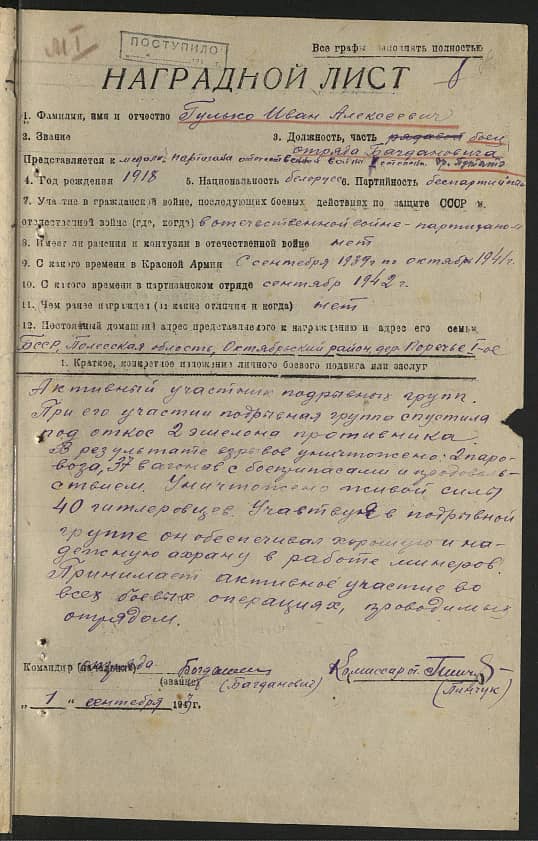 МI
ПОСТУПИЛО
Все графы заполнять полностью
НАГРАДНОЙ ЛИСТ
8
1. Фамилия, имя и отчество Гулько Иван Алексеевич
2. Звание 3. Должность, часть рядовой боец
отряда Багдановича
Представляется к медали партизана отечественной войны II степени бр.
4. Год рождения 1918 5. Национальность белорус 6. Партийность беспартийный
7. Участие в гражданской войне, последующих боевых действиях по защите СССР и
отечественной войне (где, когда) в отечественной войне - партизаном
8. Имеет ли ранения и контузии в отечественной войне нет
9. С какого времени в Красной Армии С сентября 1939 г по октябрь 1941 г.
10. С какого времени в партизанском отряде сентябрь 1942 г.
11. Чем ранее награжден (за какие отличия и когда) нет
12. Постоянный домашний адрес представляемого к награждению и адрес его семьи
БССР, Полесская область, Октябрьский район, дер. Поречье I-ое
1. Краткое, конкретное изложение личного боевого подвига или заслуг
Активный участник подрывных групп.
При его участии подрывная группа спустила
под откос 2 эшелона противника.
В результате взрывов уничтожено: 2 паро-
воза, 37 вагонов с боеприпасами и продоволь-
ствием. Уничтожено живой силы
40 гитлеровцев. Участвуя в подрывной
группе он обеспечивал хорошую и на-
дежную охрану в работе минеров.
Принимает активное участие во
всех боевых операциях, проводимых
отрядом.
Командир (начальник) отряда Богданович Комиссар от. Пинчук
(звание) (Багданович) (Пинчук)
„1" сентября 194 г.